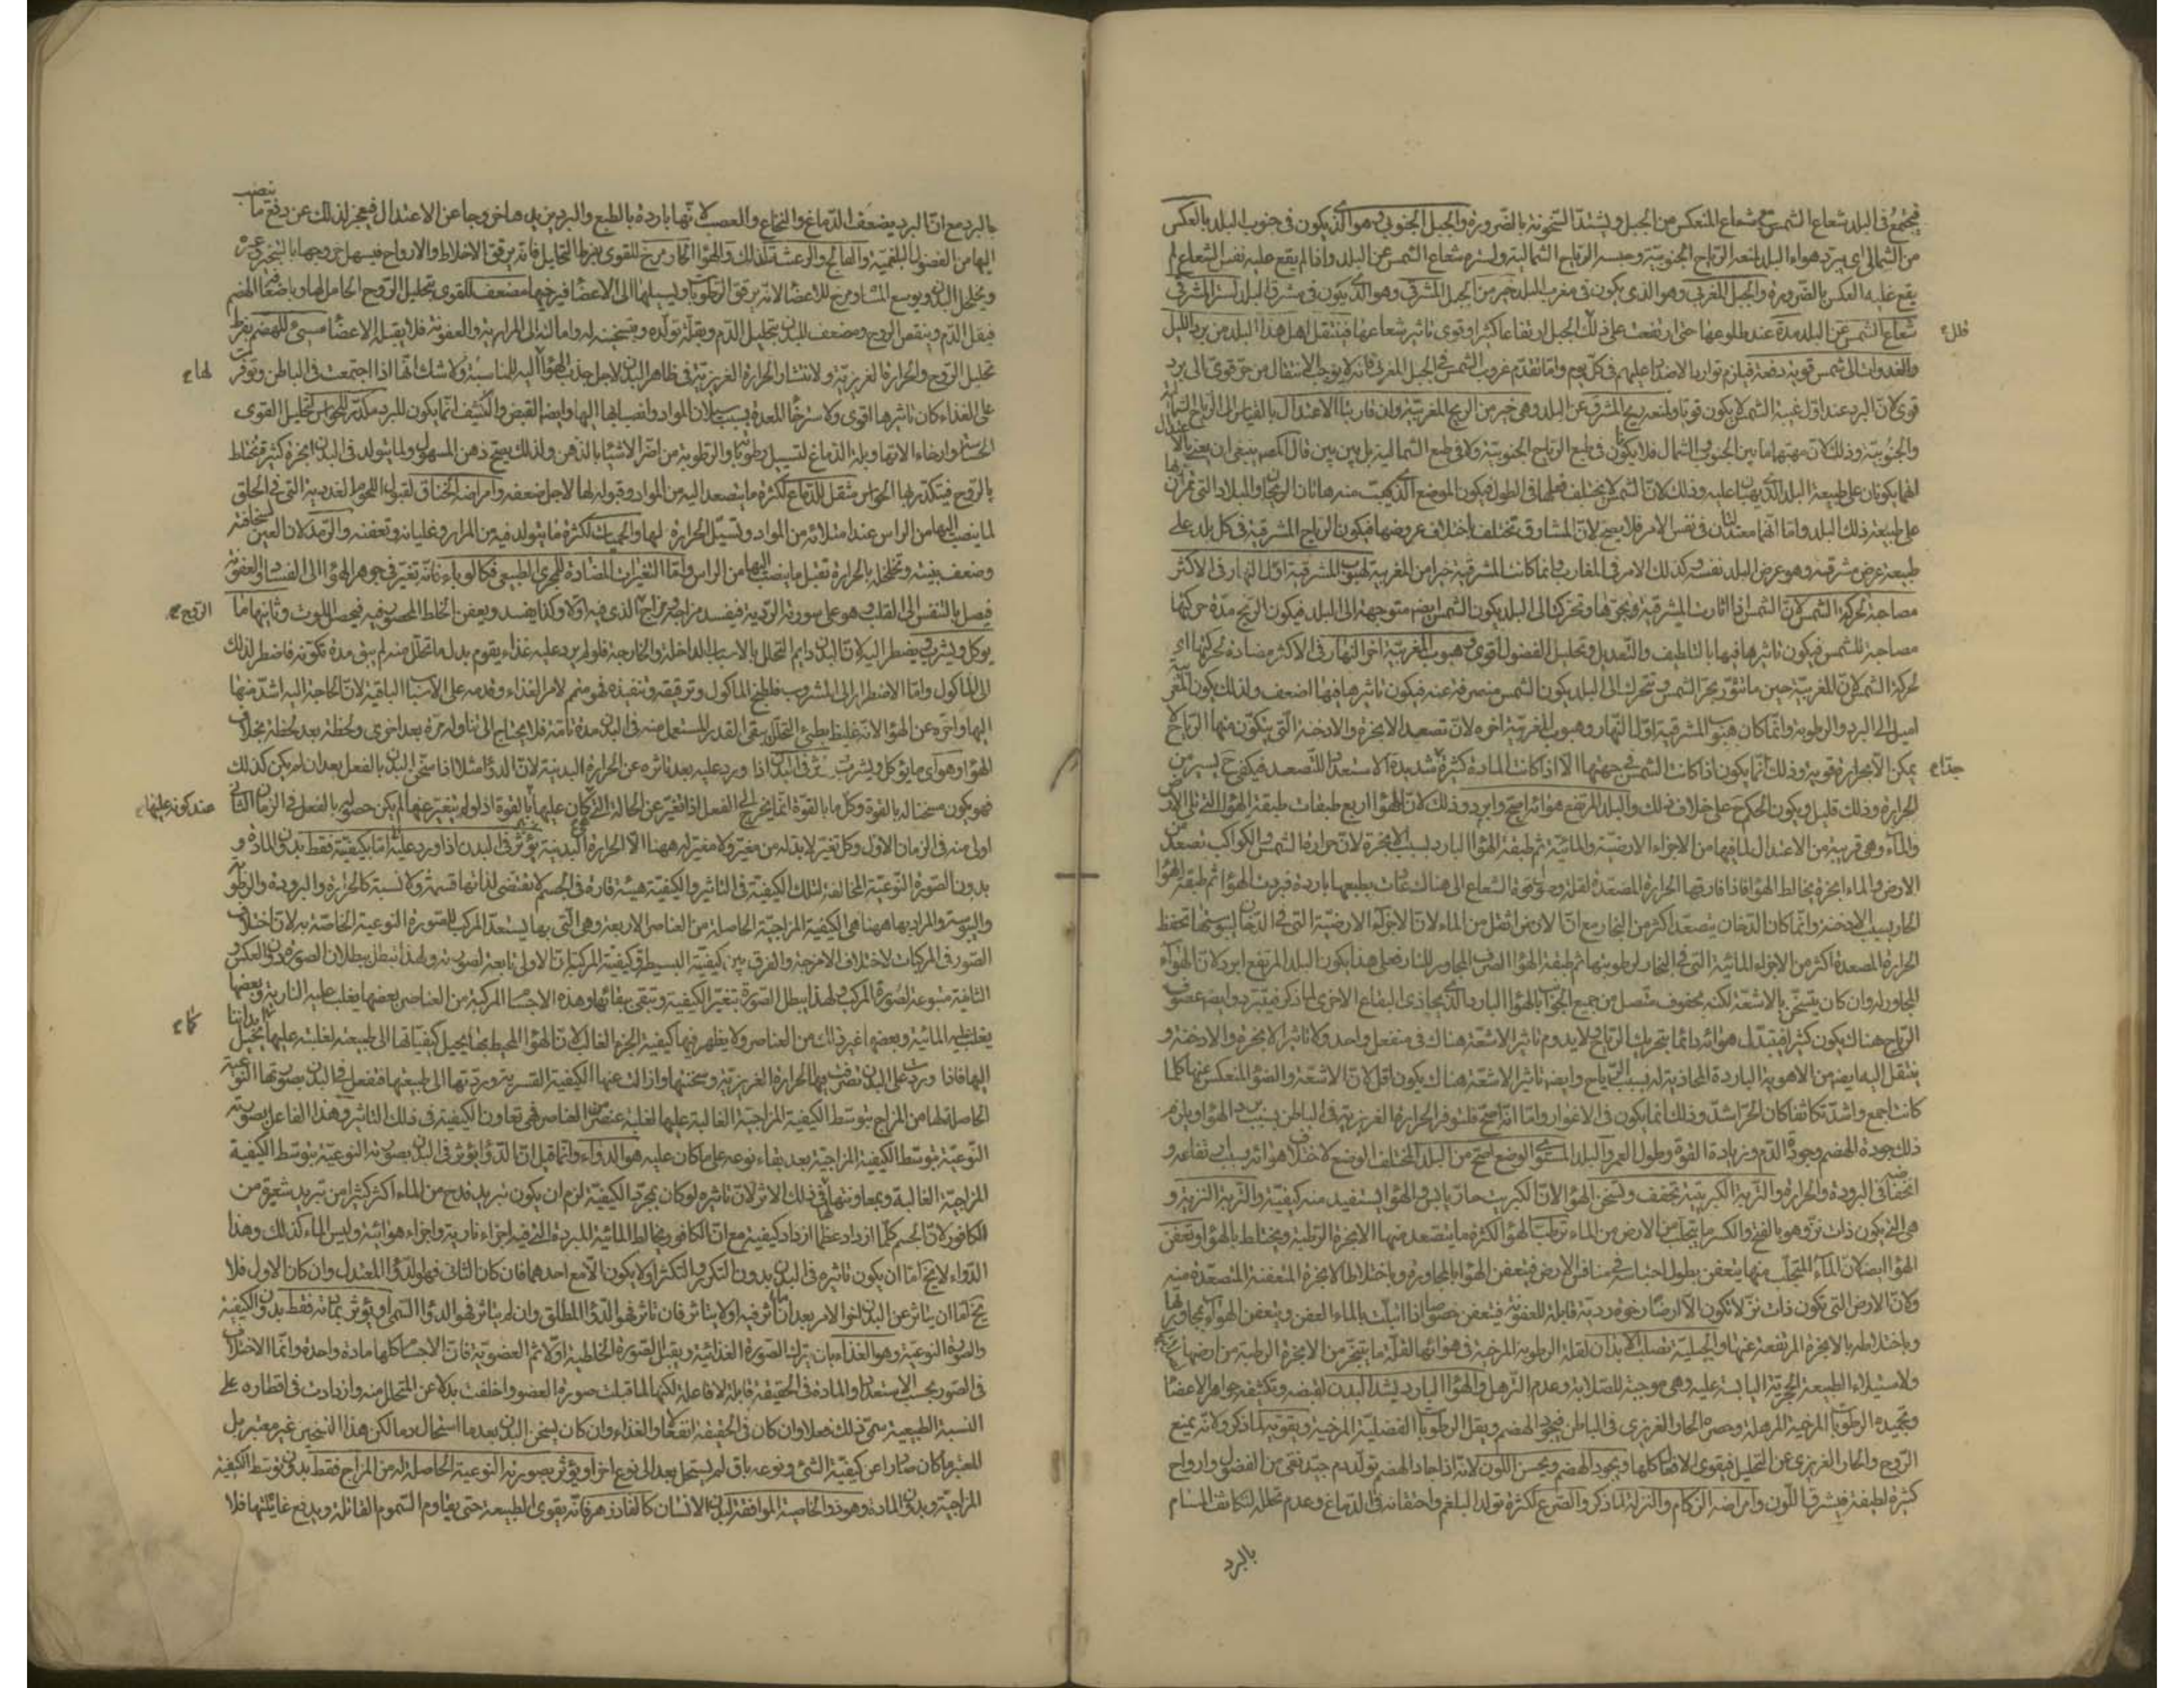 فيجتمع فى البلد شعاع الشمس مع شعاع المنعكس من الجبل ويشتد السخونة بالضرورة والجبل الجنوبى وهو الذى يكون فى جنوب البلد بالعكس
من الشمالى اى يبرد هواء البلد لمنعه الرياح الجنوبية وحبسه الرياح الشمالية ولستره شعاع الشمس عن البلد واذا لم يقع عليه نفس الشعاع لم
يقع عليه العكس بالضرورة والجبل المغربى وهو الذى يكون فى مغرب البلد خير من الجبل المشرقى وهو الذى يكون فى مشرق البلد لستر المشرقى
شعاع الشمس عن البلد مدة عند طلوعها حتى ارتفعت على ذلك الجبل ارتفاعا كثيرا وقوى تاثير شعاعها فينتقل اهل هذا البلد من برد الليل
ظلل
والغدوات الى شمس قوية دفعة فيلزم توارد الاضداد عليهم فى كل يوم واما تقدم غروب الشمس فى الجبل المغربى فانه لا يوجب الانتقال من حر قوى الى برد
قوى لان البرد عند اول غيبة الشمس لا يكون قويا ولمنعه ريح المشرق عن البلد وهى خير من الريح المغربية وان قاربتا الاعتدال بالقياس الى الرياح الشمالية
والجنوبية وذلك لان مهبهما ما بين الجنوب والشمال فلا يكون فى طبع الرياح الجنوبية ولا فى طبع الشمالية بل بين بين قال المص ينبغى ان
انهما يكونان على طبيعة البلد الذى يهبان عليه وذلك لان الشمس لا يختلف فعلها فى الطول فيكون الموضع الذى يهبت منه هاتان الريحان والبلاد التى تمران بها
على طبيعة ذلك البلد واما انهما معتدلتان فى نفس الامر فلا يصح لان المشارق تختلف باختلاف عروضها فيكون الرياح المشرقية فى كل بلد على
طبيعة عرض مشرقه وهو عرض البلد نفسه وكذلك الامر فى المغارب وانما كانت المشرقية خيرا من المغربية لهبوب المشرقية اول النهار فى الاكثر
مصاحبة لحركة الشمس لان الشمس اذا اثارت المشرقية وبخرتها وتحركت الى البلد يكون الشمس ايضا متوجهة الى البلد فيكون الريح مدة حركتها
مصاحبة للشمس فيكون تاثيرها فيها بالتلطيف والتعديل وتحليل الفضول اقوى وهبوب المغربية اخر النهار فى الاكثر مضادة لحركتها اى
لحركة الشمس لان المغربية حين ما تتثور بحر الشمس وتتحرك الى البلد يكون الشمس منصرفة عنه فيكون تاثيرها فيها اضعف ولذلك يكون المغربية
اميل الى البرد والرطوبة وانما كان هبوب المشرقية اول النهار وهبوب المغربية اخره لان تصعيد الابخرة والادخنة التى يتكون منها الرياح لا
يمكن الا بحرارة قوية وذلك انما يكون اذا كانت الشمس فى جهتها الا اذا كانت المادة كثيرة شديدة الاستعداد للتصعد فيكفى ح يسير من
جدا
الحرارة وذلك قليل ويكون الحكم ح على خلاف ذلك والبلد المرتفع هوائه اصح وابرد وذلك لان للهواء اربع طبقات طبقة الهواء التى تلى الارض
والماء وهى قريبة من الاعتدال لما فيها من الاجزاء الارضية والمائية ثم طبقة الهواء البارد بسبب الابخرة لان حرارة الشمس والكواكب تصعد من
الارض والماء ابخرة يخالط الهواء فاذا فارقها الحرارة المصعدة لقلة وصول قوة الشعاع الى هناك عادت بطبعها باردة فبردت الهواء ثم طبقة الهواء
الحار بسبب الادخنة وانما كان الدخان يتصعد اكثر من البخار مع ان الارض اثقل من الماء لان الاجزاء الارضية التى فى الدخان ليبوستها تحفظ
الحرارة المصعدة اكثر من الاجزاء المائية التى فى البخار لرطوبتها ثم طبقة الهواء الصرف المجاور للنار فعلى هذا يكون البلد المرتفع ابرد لان الهواء
المجاور له وان كان يتسخن بالاشعة لكنه محفوف متصل من جميع الجوانب بالهواء البارد الذى يحاذى البقاع الاخرى لما ذكر فيتبرد وايضا عصوف
الرياح هناك يكون كثيرا فيتبدل هوائه دائما بتحريك الرياح فلا يدوم تاثير الاشعة هناك فى منفعل واحد ولا تاثير الابخرة والادخنة و
ينتقل اليه ايضا من الاهوية الباردة المحاذية له بسبب الرياح وايضا تاثير الاشعة هناك يكون اقل لان الاشعة والضوء المنعكس عنها كلما
كانت اجمع واشد تكاثفا كان الحر اشد وذلك انما يكون فى الاغوار واما انه اصح فلتوفر الحرارة الغريزية فى الباطن بسبب برد الهواء ويلزم
ذلك جودة الهضم وجودة الدم وزيادة القوة وطول العمر والبلد المستوى الوضع اصح من البلد المختلف الوضع لاختلاف هوائه بسبب ارتفاعه و
انخفاضه فى البرودة والحرارة والتربة الكبريتية تجفف وتسخن الهواء لان الكبريت حار يابس والهواء يستفيد منه كيفيته والتربة النزية و
هى التى يكون ذات نز وهو بالفتح والكسر ما يتحلب من الارض من الماء ترطب الهواء لكثرة ما يتصعد منها الابخرة الرطبة ويختلط بالهواء وتعفن
الهواء ايضا لان الماء المتحلب منها يتعفن بطول احتباسه فى منافس الارض فيتعفن الهواء بالمجاورة وباختلاط الابخرة المتعفنة المتصعدة منه
ولان الارض التى تكون ذات نز لا تكون الا ارضا رخوة ردية قابلة للعفونة فيتعفن خصوصا اذا ابتلت بالماء العفن ويتعفن الهواء بمجاورتها
وباختلاطه بالابخرة المرتفعة عنها والجبلية تصلب الابدان لقلة الرطوبة المرخية فى هوائها لقلة ما يتبخر من الابخرة الرطبة من ارضها
ولاستيلاء الطبيعة الحجرية اليابسة عليه وهى موجبة للصلابة وعدم الترهل والهواء البارد يشد البدن لقبضه وتكثيفه جواهر الاعضاء
وتجميده الرطوبات المرخية المرهلة وبحصره الحار الغريزى فى الباطن فيجود الهضم ويقل الرطوبات الفضلية المرخية ويقويه لما ذكر ولانه يمنع
الروح والحار الغريزى عن التحليل فيقوى الافعال كلها ويجود الهضم ويحسن اللون لانه اذا جاد الهضم تولد دم جيد نقى من الفضول وارواح
كثيرة لطيفة فيشرق اللون وامراضه الزكام والنزلة لما ذكر والصرع لكثرة تولد البلغم واحتقانه فى الدماغ وعدم تحلله لتكاثف المسام
بالبرد
بالبرد مع ان البرد يضعف الدماغ والنخاع والعصب لانها باردة بالطبع والبرد يزيدها خروجا عن الاعتدال فيعجز لذلك عن دفع ما ينصب
اليها من الفضول البلغمية والفالج والرعشة لذلك والهواء الحار مرخ للقوى بفرط التحليل فانه يرقق الاخلاط والارواح فيسهل خروجها بالتبخير وغيره
ويخلخل البدن ويوسع المسام ومرخ للاعضاء لانه يرقق الرطوبات ويسيلها الى الاعضاء فيرخيها مضعف للقوى بتحليل الروح الحامل لها وباضعاف الهضم
فيقل الدم وينقص الروح ومضعف للبدن بتحليل الدم وبقلة تولده وتسخينه له واحالته الى المرارية والعفونة فلا يقبله الاعضاء مسيئ للهضم بفرط
تحليل الروح والحرارة الغريزية ولانتشار الحرارة الغريزية فى ظاهر البدن لاجل جذب الهواء اليه للمناسبة ولا شك انها اذا اجتمعت فى الباطن وتوفرت
لها
على الغذاء كان تاثيرها اقوى ولاسترخاء المعدة بسبب سيلان المواد وانصبابها اليها وايضا القبض والتكثيف انما يكون للبرد مكدر للحواس لتحليل القوى
الحساسة وارخاء الاتها وبلة الدماغ لتسييل رطوباته والرطوبة من اضر الاشياء بالذهن ولذلك يصح ذهن المسهول ولما يتولد فى البدن ابخرة كثيرة تختلط
بالروح فيتكدر بها الحواس مثقل للدماغ لكثرة ما يتصعد اليه من المواد وقبوله لها لاجل ضعفه وامراضه الخناق لقبول اللحوم الغددية التى فى الحلق
لما ينصب اليها من الراس عند امتلائه من المواد وتسييل الحرارة لها والحميات لكثرة ما يتولد فيه من المرار وغليانه وتعفنه والرمد لان العين لسخافته
وضعف بنيته وتخلخله بالحرارة تقبل ما ينصب اليها من الراس واما التغيرات المضادة للمجرى الطبيعى فكالوباء فانه تغير فى جوهر الهواء الى الفساد والعفونة
فيصل بالتنفس الى القلب وهو على سورته الردية فيفسد مزاجه ومزاج الذى فيه اولا وكذا يفسد ويعفن الخلط المحصور فيه فيحصل الموت وثانيها ما
الروح
يوكل ويشرب يضطر اليه لان البدن دايم التحلل بالاسباب الداخلة والخارجة فلو لم يرد عليه غذاء يقوم بدل ما تحلل منه لم يبق مدة تكونه فاضطر لذلك
الى الماكول واما الاضطرار الى المشروب فلطبخ الماكول وترقيقه وتنفيذه فهو متمم لامر الغذاء وقدمه على الاسباب الباقية لان الحاجة اليه اشد منها
اليها واخره عن الهواء لانه غليظ بطيئ التحلل يبقى القدر المستعمل منه فى البدن مدة تامة فلا يحتاج الى تناوله مرة بعد اخرى ولحظة بعد لحظة بخلاف
الهواء وهو اى ما يؤكل ويشرب يؤثر فى البدن اذا ورد عليه بعد تاثره عن الحرارة البدنية لان الدواء مثلا اذا سخن البدن بالفعل بعد ان لم يكن كذلك
فهو يكون مسخنا له بالقوة وكل ما بالقوة انما يخرج الى الفعل اذا تغير عن الحالة التى كان عليها بالقوة اذ لو لم يتغير عنها لم يكن حصوله بالفعل فى الزمان الثانى
عند كونه عليها
اولى منه فى الزمان الاول وكل تغير لابد له من مغير ولا مغير له ههنا الا الحرارة البدنية يؤثر فى البدن اذا ورد عليه اما بكيفيته فقط بدون المادة و
بدون الصورة النوعية المخالفة لتلك الكيفية فى التاثير والكيفية هيئة قارة فى الجسم لا تقتضى لذاتها قسمة ولا نسبة كالحرارة والبرودة والرطوبة
واليبوسة والمراد بها ههنا هى الكيفية المزاجية الحاصلة من العناصر الاربعة وهى التى بها يستعد المركب للصورة النوعية الخاصة به لان اختلاف
الصور فى المركبات لاختلاف الامزجة والفرق بين كيفية البسيط وكيفية المركب ان الاولى تابعة لصورته ولهذا تبطل ببطلان الصورة دون العكس و
الثانية متبوعة لصورة المركب ولهذا يبطل الصورة بتغير الكيفية وتبقى ببقائها وهذه الاجسام المركبة من العناصر بعضها يغلب عليه النارية وبعضها
يغلب عليه المائية وبعضها غير ذلك من العناصر ولا يظهر فيها كيفية الجزء الغالب لان الهواء المحيط بها يحيل كيفياتها الى طبيعته لغلبته عليها كما يحيل
كما
اليها فاذا وردت على البدن تصرفت فيها الحرارة الغريزية وسخنتها وازالت عنها الكيفية القسرية وردتها الى طبيعتها فتفعل فى البدن بصورتها النوعية
الحاصلة لها من المزاج بتوسط الكيفية المزاجية الغالبة عليها لغلبة عنصر من العناصر فهى تعاون الكيفية فى ذلك التاثير وهذا الفاعل بصورته
النوعية بتوسط الكيفية المزاجية بعد بقاء نوعه على ما كان عليه هو الدواء وانما قيل ان الدواء يؤثر فى البدن بصورته النوعية بتوسط الكيفية
المزاجية الغالبة وبمعاونتها فى ذلك الاثر لان تاثيره لو كان بمجرد الكيفية لزم ان يكون تبريد قدح من الماء اكثر كثيرا من تبريد شعيرة من
الكافور لان الجسم كلما ازداد عظما ازداد كيفية مع ان الكافور يخالط المائية المبردة التى فيه اجزاء نارية واجزاء هوائية وليس الماء كذلك وهذا
الدواء لا يخ اما ان يكون تاثيره فى البدن بدون التكرر والتكثر او لا يكون الا مع احدهما فان كان الثانى فهو الدواء المعتدل وان كان الاول فلا
يخ اما ان يتاثر عن البدن اخر الامر بعد ان اثر فيه او لا يتاثر فان تاثر فهو الدواء المطلق وان لم يتاثر فهو الدواء السمى او يؤثر بمادته فقط بدون الكيفية
والصورة النوعية وهو الغذاء بان يترك الصورة الغذائية ويقبل الصورة الخلطية اولا ثم العضوية فان الاجسام كلها مادة واحدة وانما الاختلاف
فى الصور بحسب الاستعداد والمادة فى الحقيقة قابلة لا فاعلة لكنها لما قبلت صورة العضو واخلفت بدلا عن المتحلل منه وازدادت فى اقطاره على
النسبة الطبيعية سمى ذلك فعلا وان كان فى الحقيقة انفعالا والغذاء وان كان يسخن البدن بعد ما استحال دما لكن هذا التسخين غير معتبر بل
المعتبر ما كان صادرا عن كيفية الشئ ونوعه باق لم يستحل بعد الى نوع اخر او يؤثر بصورته النوعية الحاصلة له من المزاج فقط بدون توسط الكيفية
المزاجية وبدون المادة وهو ذو الخاصية الموافقة لبدن الانسان كالفادزهر فانه يقوى الطبيعة حتى يقاوم السموم القاتلة ويدفع غائلتها فلا